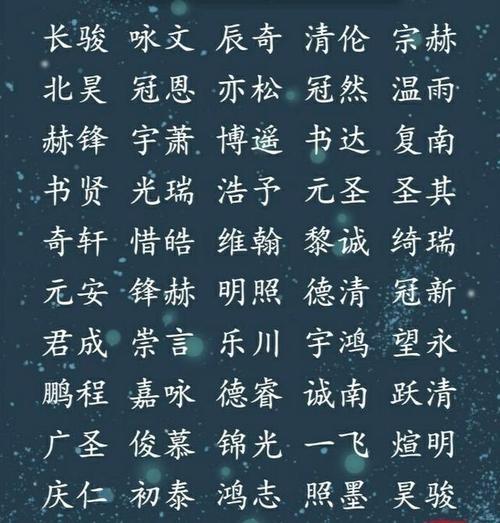 长骏 咏文 辰奇 清伦 宗赫
北昊 冠恩 亦松 冠然 温雨
赫锋 宇萧 博遥 书达 复南
书贤 光瑞 浩予 元圣 圣其
奇轩 惜皓 维翰 黎诚 绮瑞
元安 锋赫 明照 德清 冠新
君成 崇言 乐川 宇鸿 望永
鹏程 嘉咏 德睿 诚南 跃清
广圣 俊慕 锦光 一飞 煊明
庆仁 初泰 鸿志 照墨 昊骏